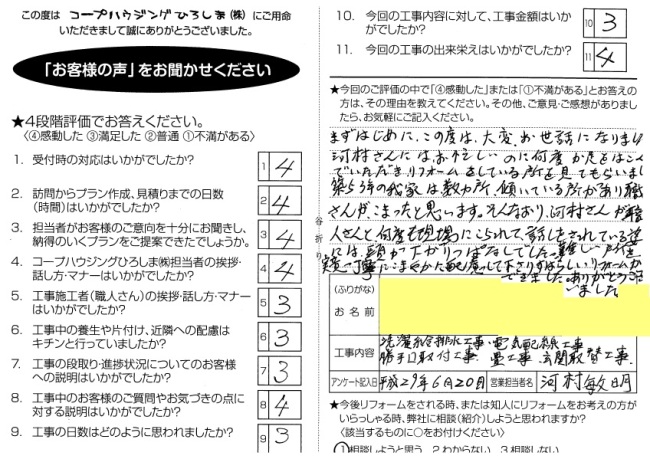 この度は コープハウジングひろしま(株) にご用命
いただきまして誠にありがとうございました。
「お客様の声」をお聞かせください
★4段階評価でお答えください。
〈④感動した ③満足した ②普通 ①不満がある〉
1. 受付時の対応はいかがでしたか?
1 4
2. 訪問からプラン作成、見積りまでの日数
(時間)はいかがでしたか?
2 4
3. 担当者がお客様のご意向を十分にお聞きし、
納得のいくプランをご提案できたでしょうか。
3 4
4. コープハウジングひろしま㈱担当者の挨拶・
話し方・マナーはいかがでしたか?
4 4
5. 工事施工者(職人さん)の挨拶・話し方・マナー
はいかがでしたか?
5 3
6. 工事中の養生や片付け、近隣への配慮は
キチンと行っていましたか?
6 3
7. 工事の段取り・進捗状況についてのお客様
への説明はいかがでしたか?
7 3
8. 工事中のお客様のご質問やお気づきの点に
対する説明はいかがでしたか?
8 4
9. 工事の日数はどのように思われましたか?
9 3
谷折り
10. 今回の工事内容に対して、工事金額はいか
がでしたか?
10 3
11. 今回の工事の出来栄えはいかがでしたか?
11 4
★今回のご評価の中で「④感動した」または「①不満がある」とお答えの
方は、その理由を教えてください。その他、ご意見・ご感想がありまし
たら、お気軽にご記入ください。
まずはじめに、この度は、大変、お世話になりまし
河村さんにはお忙しいのに何度か足をはこん
でいただきリフォームをしている所を見てもらいまし
我家は数カ所、傾いている所があり職
さんがこまったと思います。そんなおり、河村さんが職
人さんと何度も現場にこられて話しをされている姿
には、頭が下がりっぱなしでした。難しい所を
丁寧にこまやかな配慮ってくださりすばらしいリフォームが
できました。ありがとうござ
いました。
(ふりがな)
お名前
工事内容
洗濯給排水工事・電気配線工事
勝手口取付工事・畳工事・玄関取替工事・
アンケート記入日 平成29年6月20日 営業担当者名 河村敏明
★今後リフォームをされる時、または知人にリフォームをお考えの方が
いらっしゃる時、弊社に相談(紹介)しようと思われますか?
〈該当するものに○をお付けください〉
①相談しようと思う 2.わからない 3.相談しない